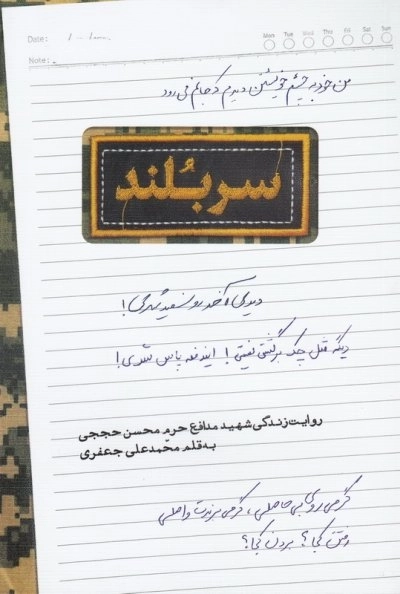 Date:
Mon Tue Wed Thu Fri Sat Sun
Note:
من خود به چشم خویشتن دیدم که جانم می رود
سربلند
دیدی آخر رو سفید شدی!
دیگه مثل چک برگشتی نیستی! ایندفعه پاس شدی!
روایت زندگی شهید مدافع حرم محسن حججی
به قلم محمدعلی جعفری
گرمی روی بی حاصلی، گرمی
رفتن کجا؟ بردن کجا؟